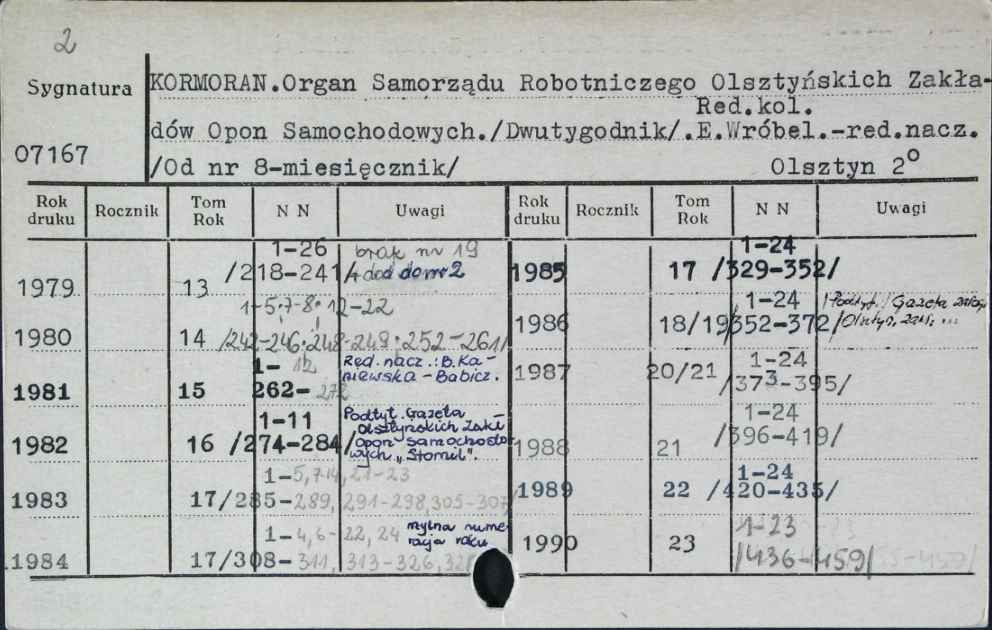 2
Sygnatura
KORMORAN.Organ Samorządu Robotniczego Olsztyńskich Zakła-
Red.kol.
dów Opon Samochodowych./Dwutygodnik/.E.Wróbel.-red.nacz.
07167
/Od nr 8-miesięcznik/ Olsztyn 2°
Rok druku Rocznik Tom Rok N N Uwagi Rok druku Rocznik Tom Rok N N Uwagi
1979 13 1-26 /218-241/ brak nr 19
+ dod do nr 2
1980 14 1-5;7-8;12-22 /242-246;248-249;252-261/
1981 15 1-12 262-272 Red. nacz.: B.Ka-
niewska-Babicz.
1982 16 1-11 /274-284/ Podtyt. Gazeta
Olsztyńskich Zakł
Opon Samochodo
wych „Stomil".
1983 17 1-5,7-14,21-23 /285-289,291-298,305-307/
1984 17 1-4,6-22,24 /308-311,313-326, mylna nume
racja roku
1985 17 1-24 /329-352/
1986 18/19 1-24 /352-372/ /Podtyt./ Gazeta
1987 20/21 1-24 /373-395/
1988 21 1-24 /396-419/
1989 22 1-24 /420-435/
1990 23 1-23 /436-459/